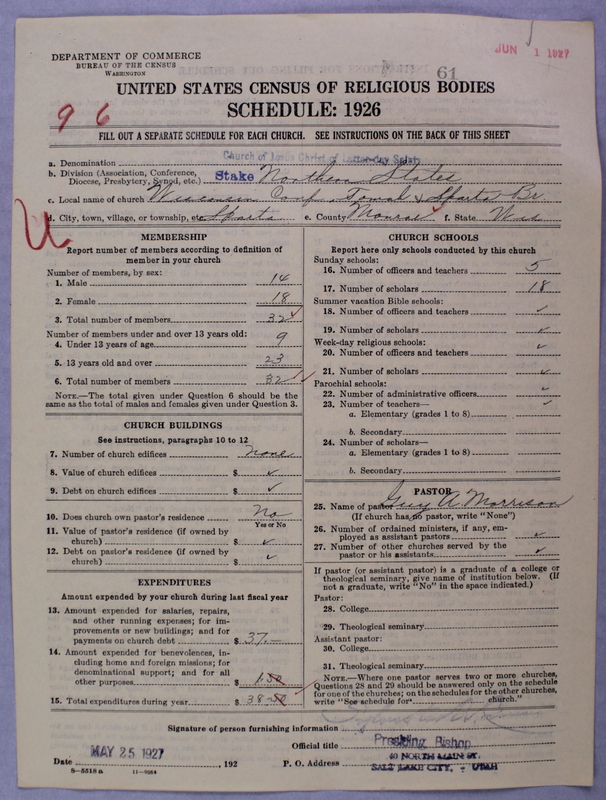 DEPARTMENT OF COMMERCE
BUREAU OF THE CENSUS
WASHINGTON
JUN 1 1927
61
UNITED STATES CENSUS OF RELIGIOUS BODIES
SCHEDULE: 1926
9 6
FILL OUT A SEPARATE SCHEDULE FOR EACH CHURCH. SEE INSTRUCTIONS ON THE BACK OF THIS SHEET
a. Denomination Church of Jesus Christ of Latter-day Saints
b. Division (Association, Conference, Diocese, Presbytery, Synod, etc.) Stake Northern States
c. Local name of church Wisconsin Conf. Tomah & Sparta Br
d. City, town, village, or township, etc. Sparta e. County Monroe f. State Wis
MEMBERSHIP
Report number of members according to definition of member in your church
Number of members, by sex:
1. Male 14
2. Female 18
3. Total number of members 32
Number of members under and over 13 years old:
4. Under 13 years of age 9
5. 13 years old and over 23
6. Total number of members 32
NOTE.—The total given under Question 6 should be the same as the total of males and females given under Question 3.
CHURCH BUILDINGS
See instructions, paragraphs 10 to 12
7. Number of church edifices none
8. Value of church edifices $ ✓
9. Debt on church edifices $ ✓
10. Does church own pastor's residence No
Yes or No
11. Value of pastor's residence (if owned by church) $ ✓
12. Debt on pastor's residence (if owned by church) $ ✓
EXPENDITURES
Amount expended by your church during last fiscal year
13. Amount expended for salaries, repairs, and other running expenses; for improvements or new buildings; and for payments on church debt $ 37.—
14. Amount expended for benevolences, including home and foreign missions; for denominational support; and for all other purposes $ 1.50
15. Total expenditures during year $ 38.50
CHURCH SCHOOLS
Report here only schools conducted by this church
Sunday schools:
16. Number of officers and teachers 5
17. Number of scholars 18
Summer vacation Bible schools:
18. Number of officers and teachers ✓
19. Number of scholars ✓
Week-day religious schools:
20. Number of officers and teachers ✓
21. Number of scholars ✓
Parochial schools:
22. Number of administrative officers ✓
23. Number of teachers— ✓
a. Elementary (grades 1 to 8)
b. Secondary
24. Number of scholars—
a. Elementary (grades 1 to 8)
b. Secondary
PASTOR
25. Name of pastor Guy A Morrison
(If church has no pastor, write "None")
26. Number of ordained ministers, if any, employed as assistant pastors ✓
27. Number of other churches served by the pastor or his assistants ✓
If pastor (or assistant pastor) is a graduate of a college or theological seminary, give name of institution below. (If not a graduate, write "No" in the space indicated.)
Pastor:
28. College
29. Theological seminary
Assistant pastor:
30. College
31. Theological seminary
NOTE.—Where one pastor serves two or more churches, Questions 28 and 29 should be answered only on the schedule for one of the churches; on the schedules for the other churches, write "See schedule for church."
Signature of person furnishing information
Official title Presiding Bishop
Date MAY 25 1927 , 192 P. O. Address 40 NORTH MAIN ST.
SALT LAKE CITY, - UTAH
8—5518a 11—9984